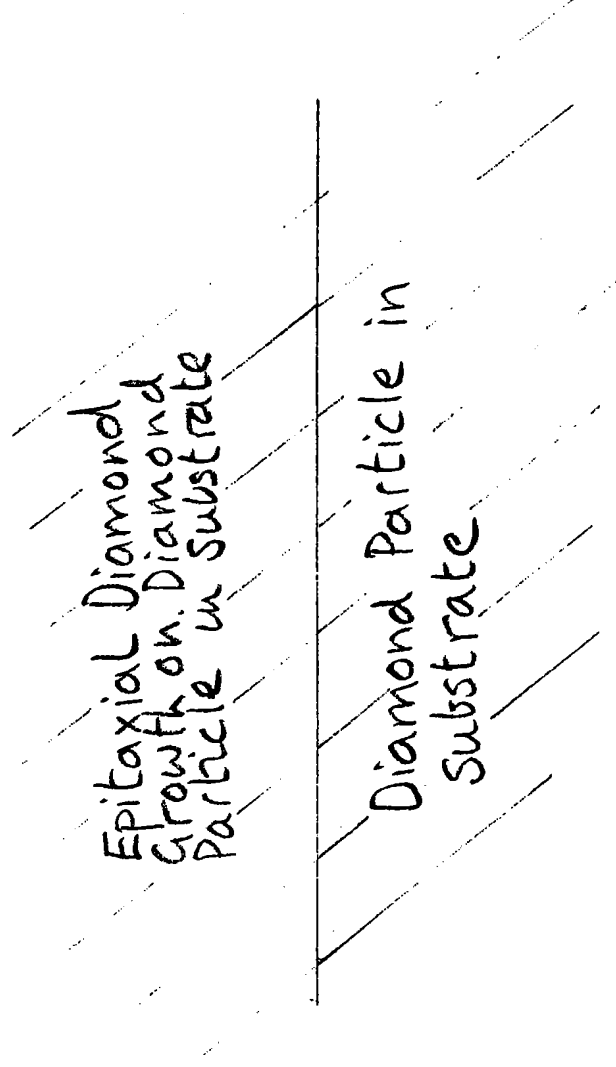 Epitaxial Diamond
Growth on Diamond
Particle in Substrate
Diamond Particle in
Substrate